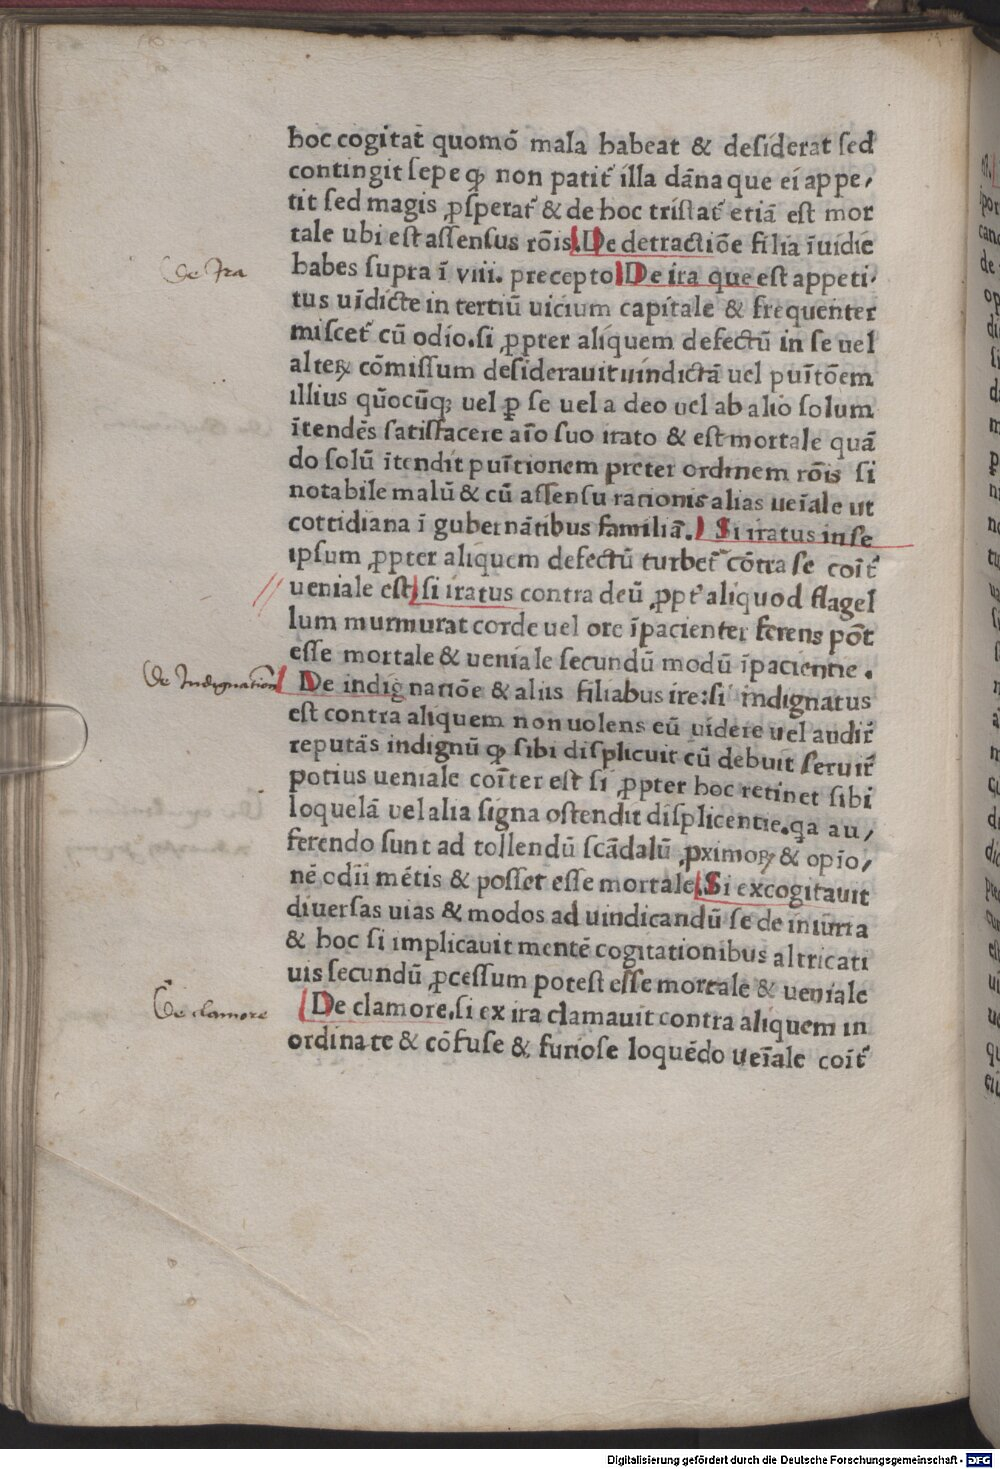 hoc cogitat quomō mala habeat & desiderat sed
contingit sepe ꝙ non patit᷑ illa dāna que ei appe,
tit sed magis ꝓsperat᷑ & de hoc tristat᷑ etiā est mor
tale ubi est assensus rōis. De detractiōe filia īuidie
De Ira
habes supra ī viii. precepto De ira que est appeti,
tus uīdicte in tertiū uicium capitale & frequenter
miscet᷑ cū odio. si ꝓpter aliquem defectū in se uel
alteꝝ cōmissum desiderauit uindictā uel puītōem
illius qūocūqꝫ uel ꝑ se uel a deo uel ab alio solum
ītendēs satisfacere aīo suo irato & est mortale quā
do solū ītendit puītionem preter ordinem rōis si
notabile malū & cū assensu rationis alias ueīale ut
cottidiana ī gubernātibus familiā. Si iratus in se
ipsum ꝓpter aliquem defectū turbet᷑ cōtra se coīt᷑
ueniale est si iratus contra deū ꝓpt᷑ aliquod flagel
lum murmurat corde uel ore īpacienter ferens pōt
esse mortale & ueniale secundū modū īpacientie.
De Indignatione
De indignatiōe & aliis filiabus ire: si indignatus
est contra aliquem non uolens eū uidere uel audir᷑
reputās indignū ꝙ sibi displicuit cū debuit seruir᷑
potius ueniale coīter est si ꝓpter hoc retinet sibi
loquelā uel alia signa ostendit displicentie. qa au,
ferendo sunt ad tollendū scādalū ꝓximoꝝ & opīo,
nē odii mētis & posset esse mortale. Si excogitauit
diuersas uias & modos ad uindicandū se de iniuria
& hoc si implicauit mentē cogitationibus altricati
uis secundū ꝓcessum potest esse mortale & ueniale
De clamore
De clamore. si ex ira clamauit contra aliquem in
ordinate & cōfuse & furiose loquēdo ueīale coīt᷑
Digitalisierung gefördert durch die Deutsche Forschungsgemeinschaft - DFG